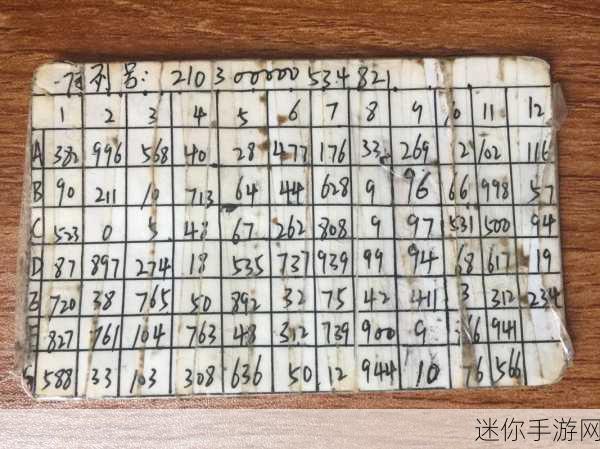 序列号: 210300000534821
1 2 3 4 5 6 7 8 9 10 11 12
A 382 996 568 40 28 477 176 33 269 2 102 116
B 90 211 10 713 64 44 628 9 96 66 998 57
C 523 0 5 48 67 262 808 9 97 531 500 94
D 87 897 274 18 535 737 939 99 94 68 617 19
E 720 38 765 50 892 32 75 42 411 3 312 234
F 827 761 104 763 48 312 739 900 9 16 941
588 33 103 308 636 50 12 944 10 76 566
迷你手游网